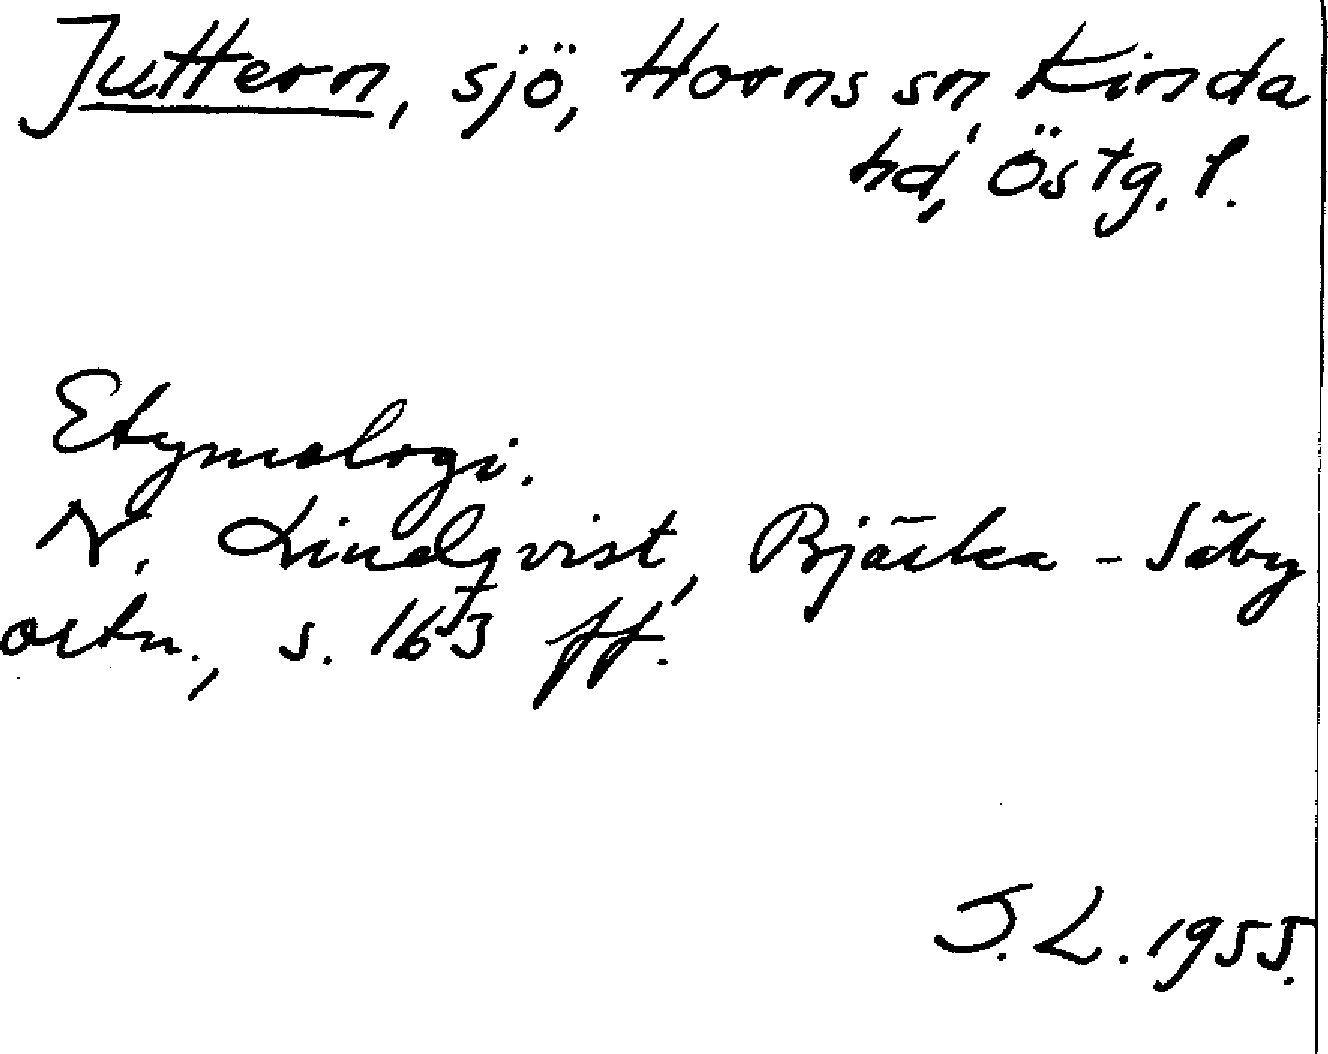 Juttern, sjö, Horns sn, Kinda
hd, Östg. l.
Etymologi.
N. Lindqvist, Bjärka-Säby
ortn., s. 163 ff.
J. L. 1955.